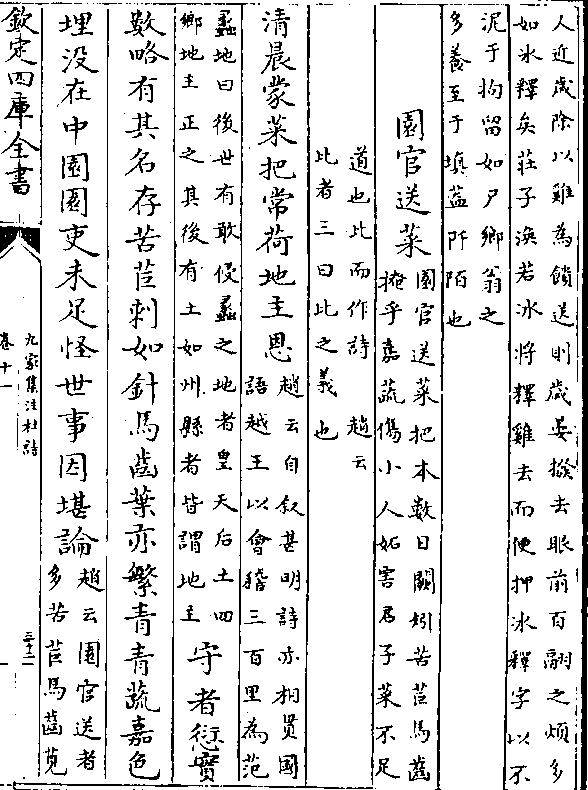 人近歲除以雞為餽送則歲晏撥去眼前百翮之煩多
如冰釋矣莊子渙若冰將釋雞去而便押冰釋字以不
泥于拘留如尸鄉翁之
多養至于填蓋阡陌也
園官送菜
園官送菜把本數日闕矧苦苣馬齒
掩乎嘉蔬傷小人妬害君子菜不足
道也比而作詩 趙云
比者三曰比之義也
清晨蒙菜把常荷地主恩
趙云自叙甚明詩亦相貫國
語越王以會稽三百里為范
蠡地曰後世有敢侵蠡之地者皇天后土四
鄉地主正之其後有土如州縣者皆謂地主
守者愆實
數略有其名存苦苣刺如針馬齒葉亦繁青青蔬嘉色
埋没在中園園吏未足怪世事因堪論
趙云園官送者
多苦苣馬齒莧
欽定四庫全書
九家集注杜詩
卷十一
三十二